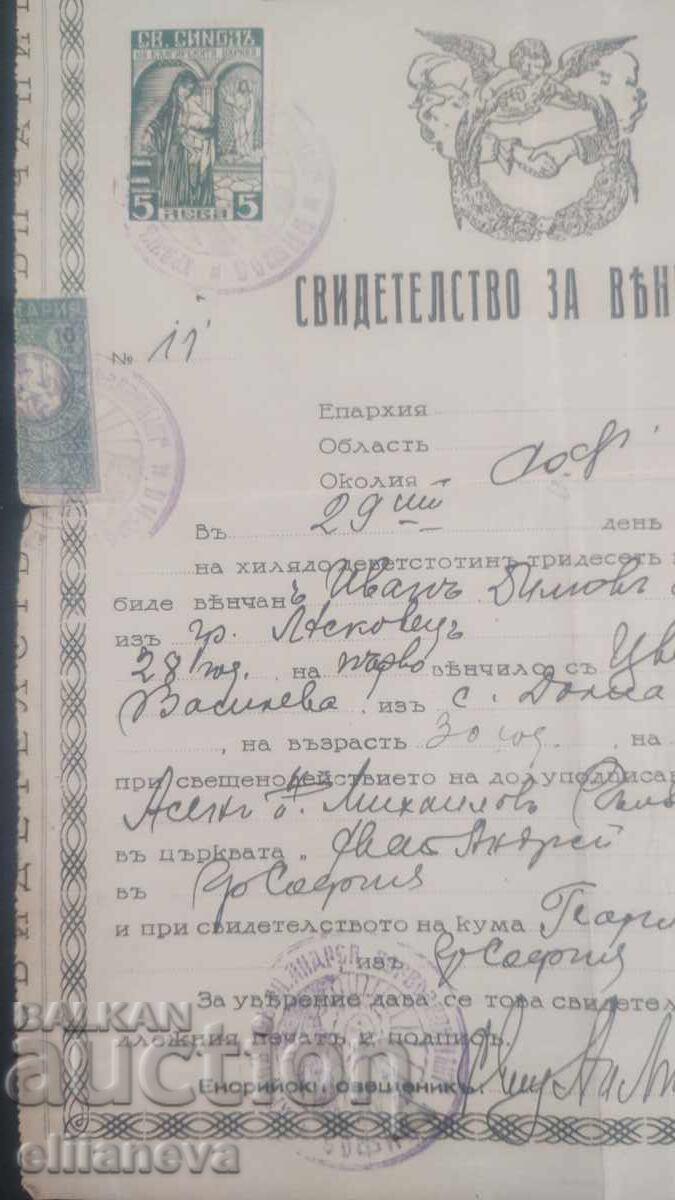 СВ. СИНОДЪ
НА БЪЛГАРСКАТА ЦЪРКВА
5 ЛЕВА 5
СВИДЕТЕЛСТВО ЗА ВѢН
№ 11
Епархия
Область
Околия Соф
Въ 29 ий день
на хилядо деветстотинъ тридесеть
биде вѣнчанъ Иванъ Димовъ
изъ гр. Лясковецъ
28 год. на първо вѣнчило съ Цве
Василева изъ с. Долна
, на възрасть 30 год. на
при свещенодействието на долуподписа
Асенъ п. Михаиловъ
въ църквата „ Андрей
въ гр София
и при свидетелството на кума Георги
изъ гр София
За увѣрение дава се това свидетел
длъжния печатъ и подпись.
Енорийски свещеникъ:
BALKAN
auction
eliianeva